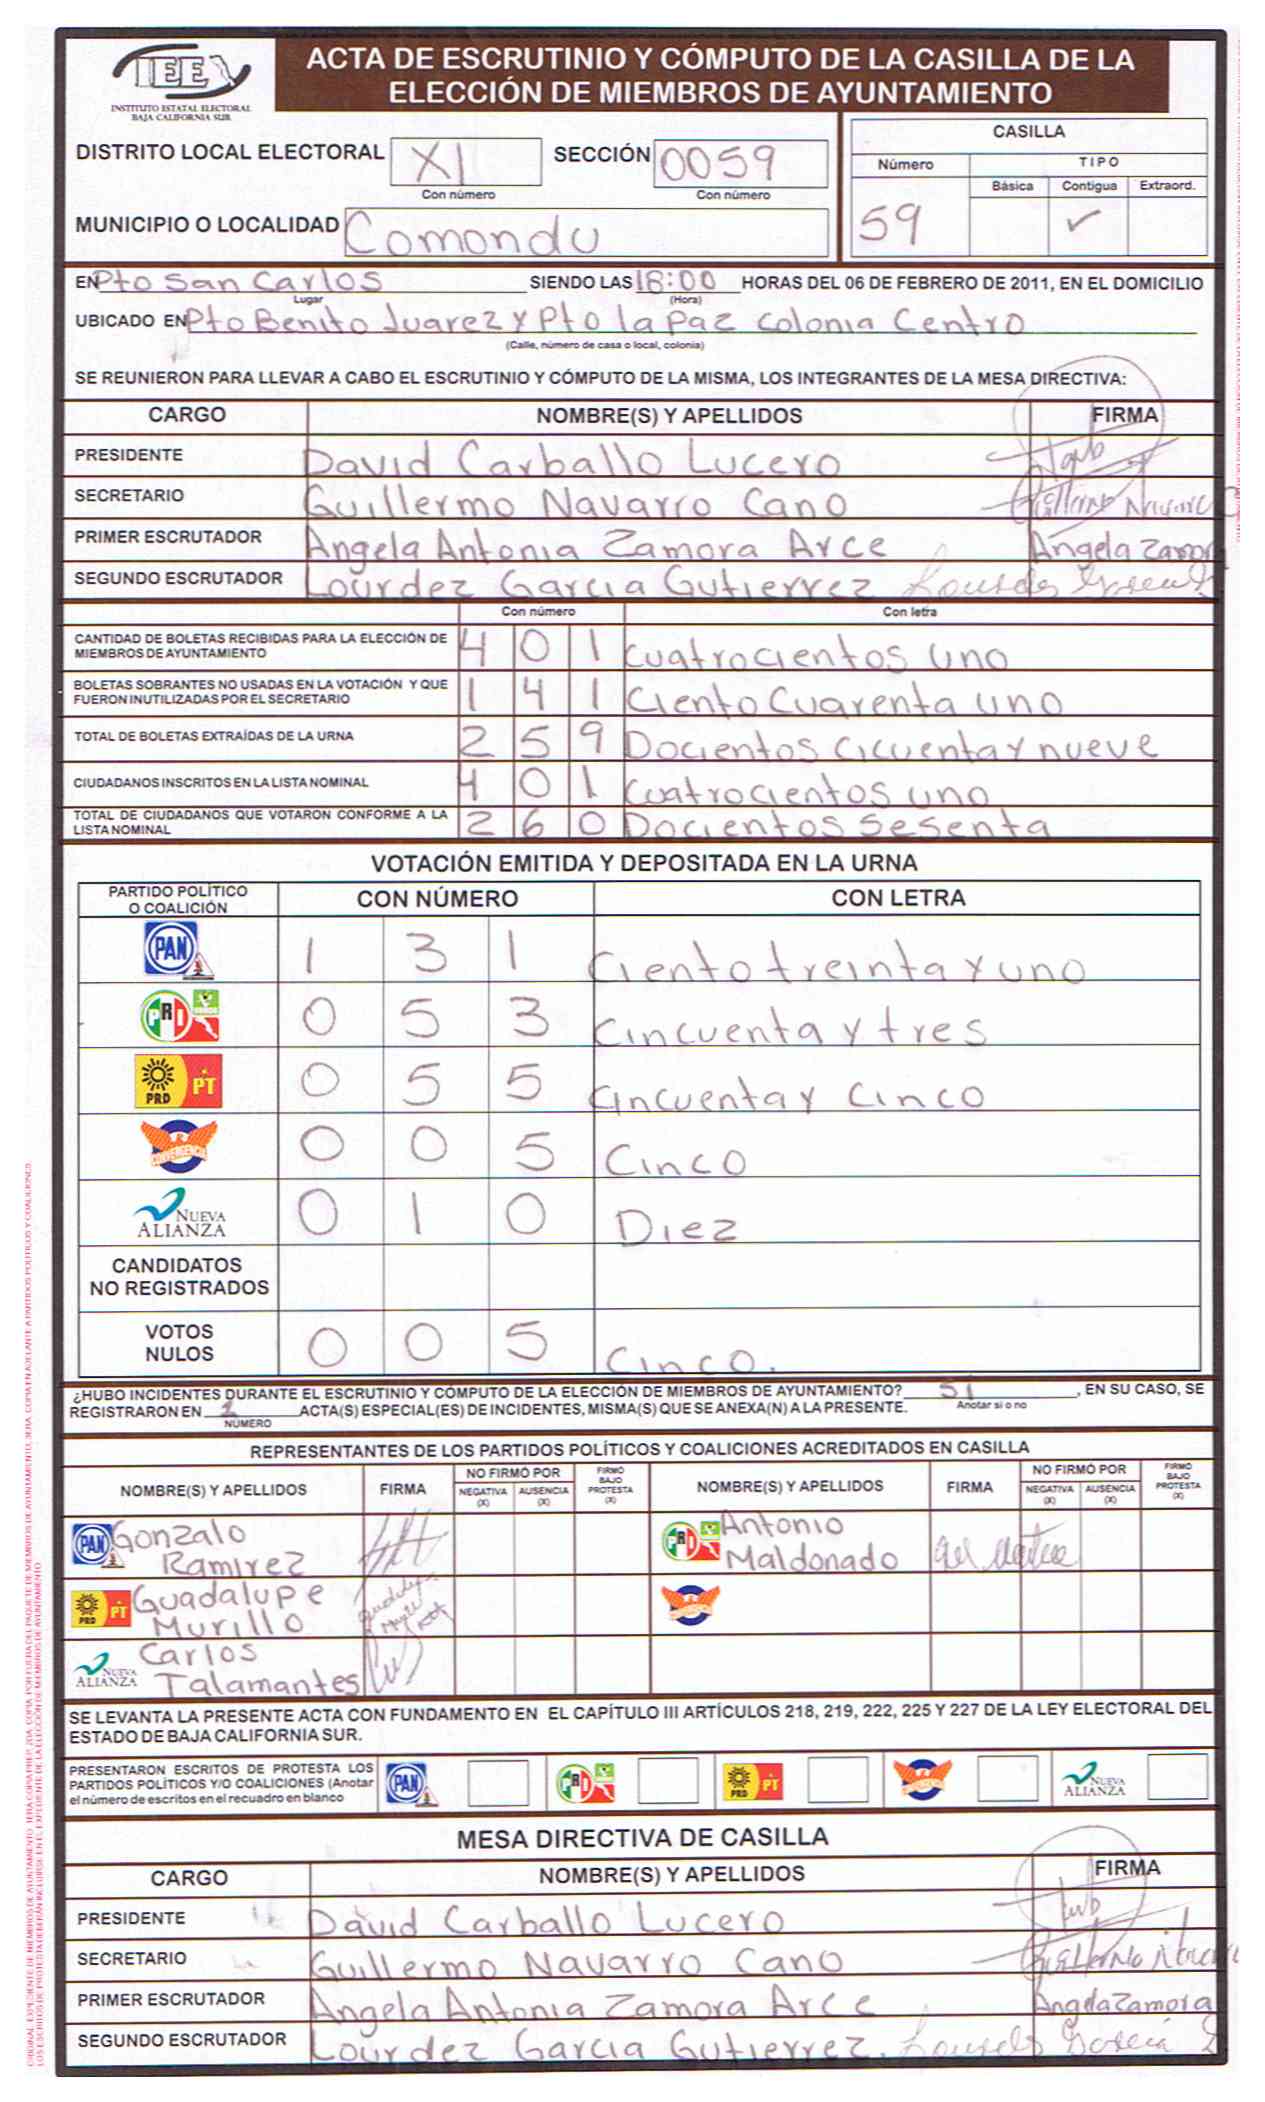 IEE
INSTITUTO ESTATAL ELECTORAL
BAJA CALIFORNIA SUR
ACTA DE ESCRUTINIO Y CÓMPUTO DE LA CASILLA DE LA
ELECCIÓN DE MIEMBROS DE AYUNTAMIENTO
DISTRITO LOCAL ELECTORAL XI SECCIÓN 0059
Con número Con número
MUNICIPIO O LOCALIDAD Comondu
CASILLA
Número TIPO
Básica Contigua Extraord.
59 ✓
EN Pto San Carlos SIENDO LAS 18:00 HORAS DEL 06 DE FEBRERO DE 2011, EN EL DOMICILIO
Lugar (Hora)
UBICADO EN Pto Benito Juarez y Pto la Paz Colonia Centro
(Calle, número de casa o local, colonia)
SE REUNIERON PARA LLEVAR A CABO EL ESCRUTINIO Y CÓMPUTO DE LA MISMA, LOS INTEGRANTES DE LA MESA DIRECTIVA:
CARGO NOMBRE(S) Y APELLIDOS FIRMA
PRESIDENTE David Carballo Lucero
SECRETARIO Guillermo Navarro Cano
PRIMER ESCRUTADOR Angela Antonia Zamora Arce Angela Zamora
SEGUNDO ESCRUTADOR Lourdez Garcia Gutierrez
Con número Con letra
CANTIDAD DE BOLETAS RECIBIDAS PARA LA ELECCIÓN DE
MIEMBROS DE AYUNTAMIENTO 4 0 1 Cuatrocientos uno
BOLETAS SOBRANTES NO USADAS EN LA VOTACIÓN Y QUE
FUERON INUTILIZADAS POR EL SECRETARIO 1 4 1 Ciento Cuarenta uno
TOTAL DE BOLETAS EXTRAÍDAS DE LA URNA 2 5 9 Docientos Cicuenta y nueve
CIUDADANOS INSCRITOS EN LA LISTA NOMINAL 4 0 1 Cuatrocientos uno
TOTAL DE CIUDADANOS QUE VOTARON CONFORME A LA
LISTA NOMINAL 2 6 0 Docientos Sesenta
VOTACIÓN EMITIDA Y DEPOSITADA EN LA URNA
PARTIDO POLÍTICO
O COALICIÓN CON NÚMERO CON LETRA
PAN 1 3 1 Ciento treinta y uno
PRI 0 5 3 Cincuenta y tres
PRD PT 0 5 5 Cincuenta y Cinco
CONVERGENCIA 0 0 5 Cinco
NUEVA ALIANZA 0 1 0 Diez
CANDIDATOS
NO REGISTRADOS
VOTOS
NULOS 0 0 5 Cinco.
¿HUBO INCIDENTES DURANTE EL ESCRUTINIO Y CÓMPUTO DE LA ELECCIÓN DE MIEMBROS DE AYUNTAMIENTO? SI , EN SU CASO, SE
Anotar si o no
REGISTRARON EN 1 ACTA(S) ESPECIAL(ES) DE INCIDENTES, MISMA(S) QUE SE ANEXA(N) A LA PRESENTE.
NÚMERO
REPRESENTANTES DE LOS PARTIDOS POLÍTICOS Y COALICIONES ACREDITADOS EN CASILLA
NOMBRE(S) Y APELLIDOS FIRMA NO FIRMÓ POR NEGATIVA (X) AUSENCIA (X) FIRMÓ BAJO PROTESTA (X) NOMBRE(S) Y APELLIDOS FIRMA NO FIRMÓ POR NEGATIVA (X) AUSENCIA (X) FIRMÓ BAJO PROTESTA (X)
PAN Gonzalo PRI Antonio
Ramirez Maldonado
PRD PT Guadalupe
Murillo
NUEVA ALIANZA Carlos
Talamantes
SE LEVANTA LA PRESENTE ACTA CON FUNDAMENTO EN EL CAPÍTULO III ARTÍCULOS 218, 219, 222, 225 Y 227 DE LA LEY ELECTORAL DEL
ESTADO DE BAJA CALIFORNIA SUR.
PRESENTARON ESCRITOS DE PROTESTA LOS
PARTIDOS POLÍTICOS Y/O COALICIONES (Anotar
el número de escritos en el recuadro en blanco
PAN PRI PRD PT NUEVA ALIANZA
MESA DIRECTIVA DE CASILLA
CARGO NOMBRE(S) Y APELLIDOS FIRMA
PRESIDENTE David Carballo Lucero
SECRETARIO Guillermo Navarro Cano
PRIMER ESCRUTADOR Angela Antonia Zamora Arce Angela Zamora
SEGUNDO ESCRUTADOR Lourdez Garcia Gutierrez.